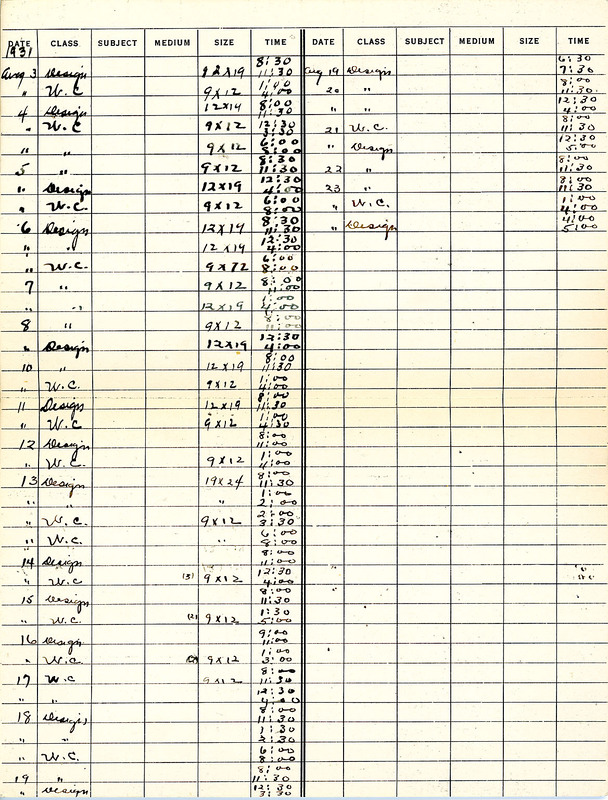 DATE CLASS SUBJECT MEDIUM SIZE TIME DATE CLASS SUBJECT MEDIUM SIZE TIME
1931
Aug 3 Design 12x19 8:30 11:30
" W.C 9x12 1:00 4:00
4 Design 12x19 8:00 11:30
" W.C 9x12 12:30 3:30
" " 9x12 6:00 8:00
5 " 9x12 8:30 11:30
" Design 12x19 12:30 4:00
" W.C. 9x12 6:00 8:00
6 Design 12x19 8:30 11:30
" " 12x19 12:30 4:00
" W.C. 9x12 6:00 8:00
7 " 9x12 8:00 11:00
" " 12x19 1:00 4:00
8 " 9x12 8:00 11:00
" Design 12x19 12:30 4:00
10 " 12x19 8:00 11:30
" W.C. 9x12 1:00 4:00
11 Design 12x19 8:00 11:30
" W.C 9x12 1:00 4:30
12 Design 8:00 11:00
" W.C. 9x12 1:00 4:00
13 Design 19x24 8:00 11:30
" " " 1:00 2:00
" W.C. 9x12 2:00 3:30
" W.C. " 6:00 8:00
14 Design 8:00 11:00
" W.C (3) 9x12 12:30 4:00
15 Design 8:00 11:30
" W.C. (2) 9x12 1:30 5:00
16 Design 9:00 11:00
" W.C. (2) 9x12 1:00 3:00
17 W.C 9x12 8:00 11:30
" " 12:30 4:00
18 Design 8:00 11:30
" " 1:30 3:30
" W.C. 6:00 8:00
19 " 8:00 11:30
" Design 12:30 3:30
Aug 19 Design 6:30 7:30
20 " 8:00 11:30
" " 12:30 4:00
21 W.C. 8:00 11:30
" Design 12:30 5:00
22 " 8:00 11:30
23 " 8:00 11:30
" W.C. 1:00 4:00
" Design 4:00 5:00